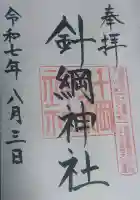 奉拝
針綱神社
令和七年八月三日